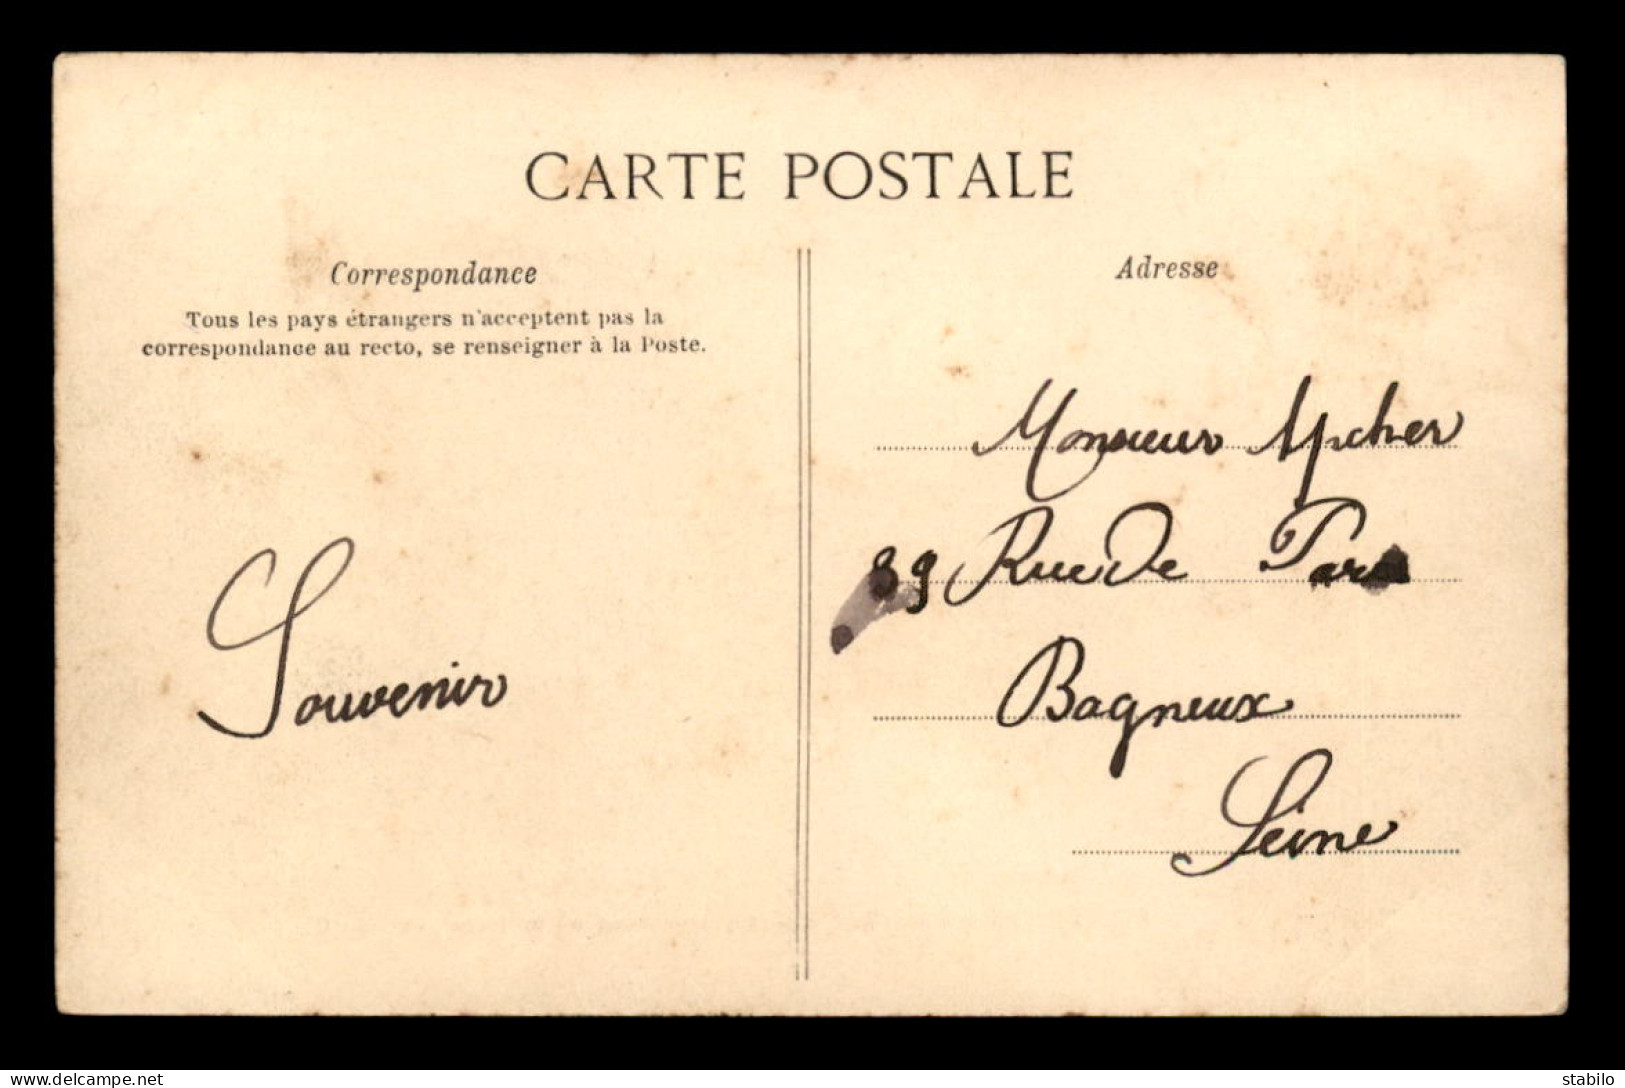 CARTE POSTALE
Correspondance
Tous les pays étrangers n'acceptent pas la
correspondance au recto, se renseigner à la Poste.
Souvenir
Adresse
Monsieur
89 Rue De Paris
Bagneux
Seine
www.delcampe.net
stabilo